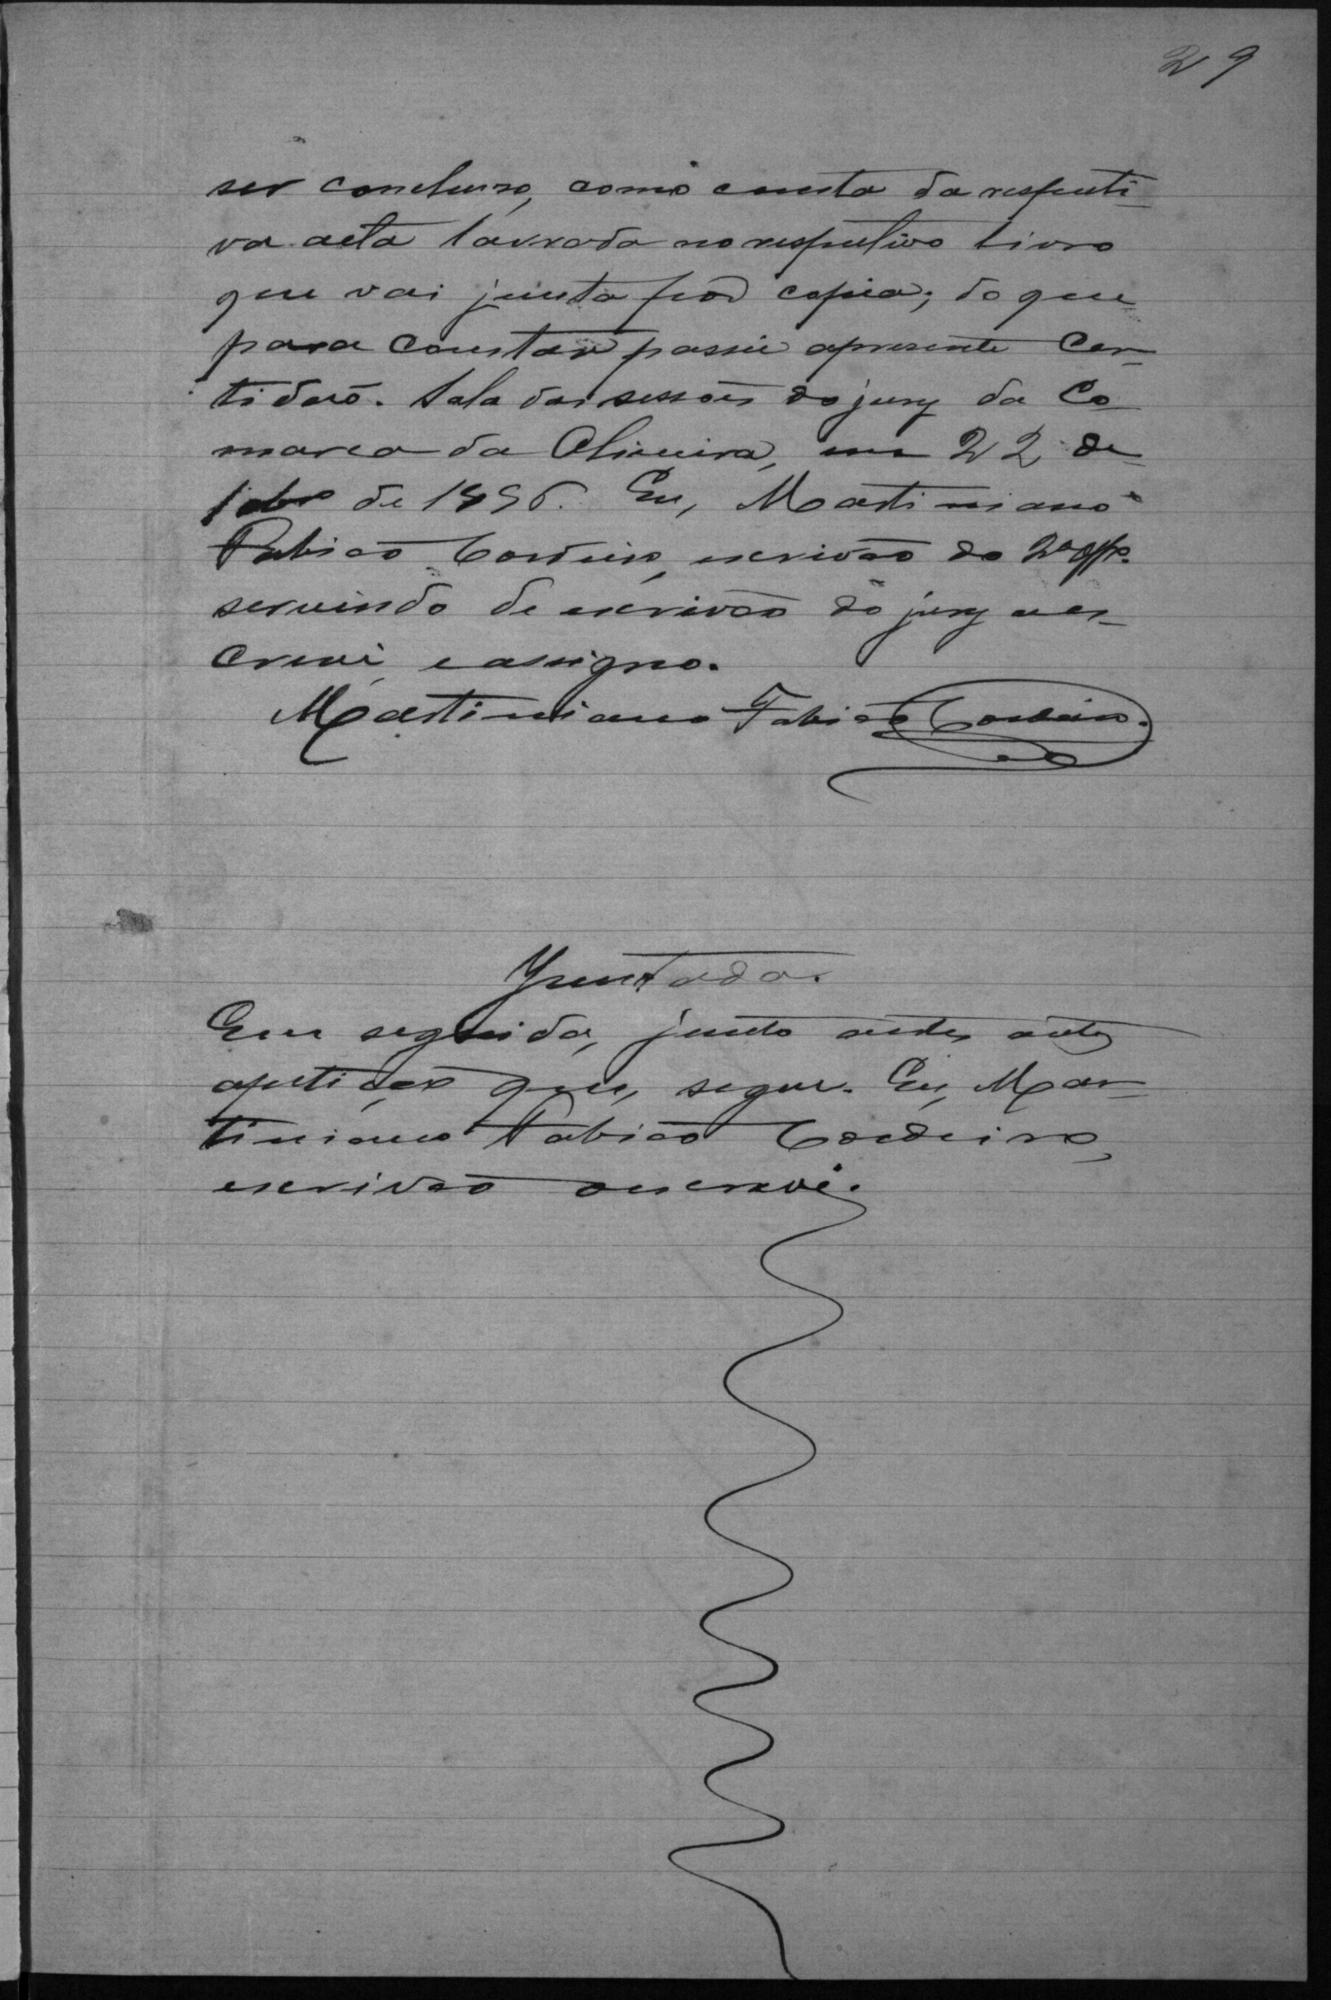 29
ser concluso, como consta da respecti-
va acta lavrada no respectivo livro
que vai junta por copia; do que
para constar passei apresente Cer-
tidaõ. Sala das sessões do jury da Co
marca da Oliveira, em 22 de
de 1896. Eu, Martiniano
Fabiaõ Cordeiro, escrivaõ do 2º offº.
servindo de escrivaõ do jury oes-
crevi, e assigno.
Martiniano Fabiaõ Cordeiro.
Juntada.
Em seguida, junto a estes autos
apetiçaõ que, segue. Eu, Mar-
tiniano Fabiaõ Cordeiro,
escrivaõ oescrevi.